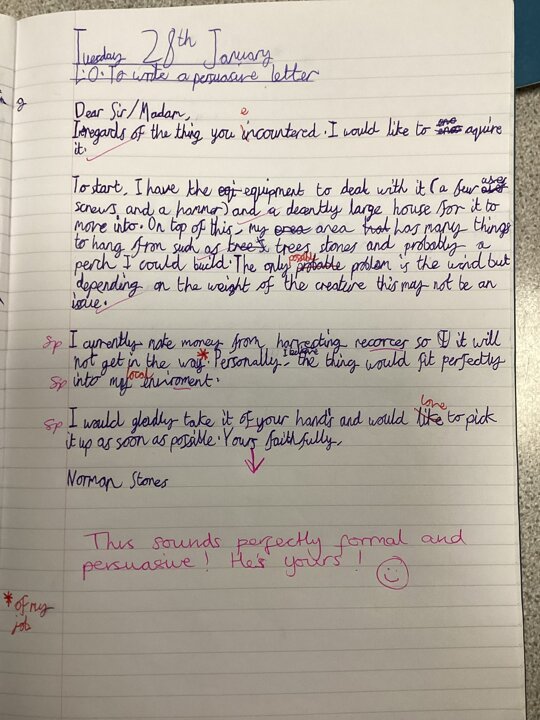 Tuesday 28th January
L.O. To write a persuasive letter
g
Dear Sir/Madam,
e
In regards of the thing you incountered. I would like to aquire
it.
To start, I have the equipment to deal with it (a few
screws and a hammor) and a deantly large house for it to
more into. On top of this, my area area has many things
to hang from such as tree's trees stones and probably a
perth I could build. The only probable problem is the wind but
possibly
depending on the weight of the creature this may not be an
issue.
Sp I currently make money from harvesting recorces so I it will
not get in the way. * Personally, I believe the thing would fit perfectly
Sp into my local enviroment.
love
Sp I would gladly take it of your hand's and would like to pick
it up as soon as posible. Yours faithfully,
Norman Stones
This sounds perfectly formal and
persuasive! He's yours!
* of my
job